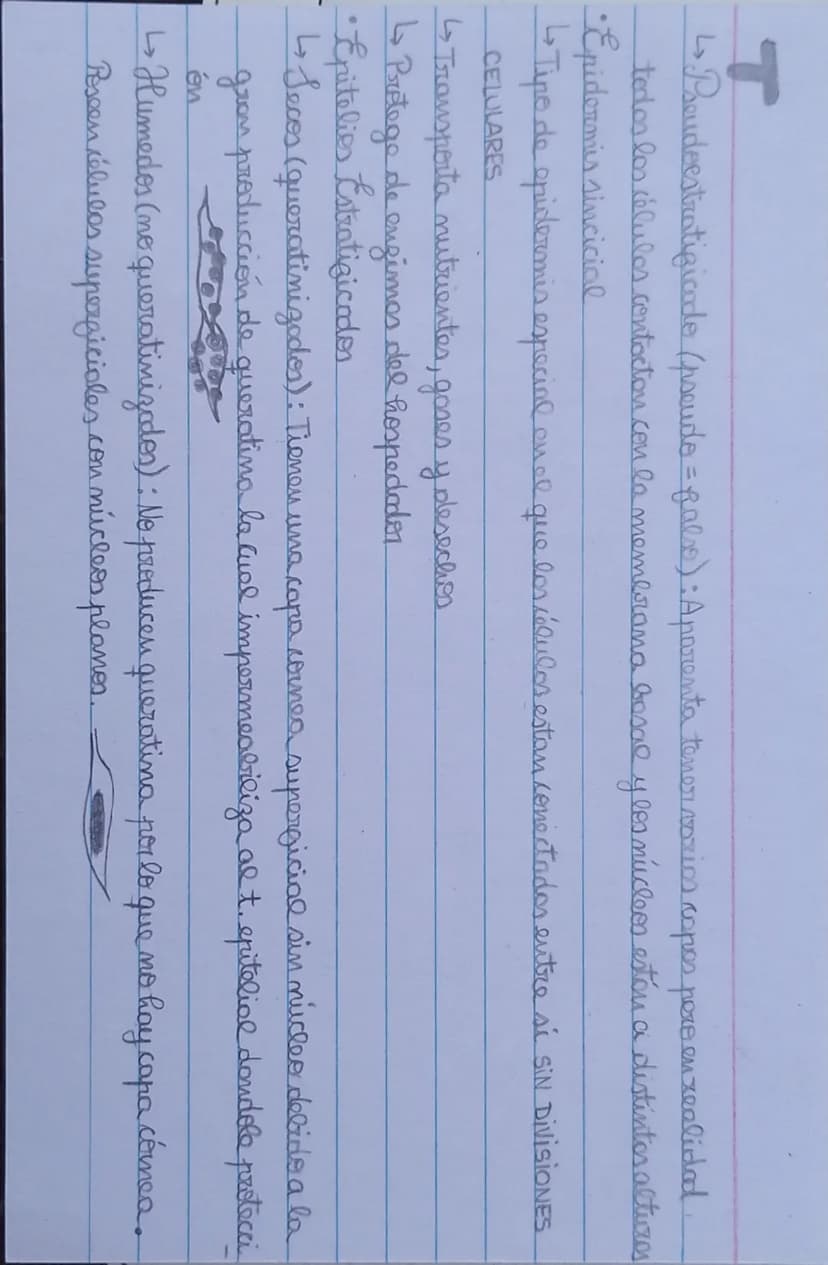 ↳ Pseudoestratificado (pseudo = falso): Aparenta tener varias capas pero en realidad
todas las células contactan con la membrana basal y los núcleos están a distintas alturas
• Epidermis sincicial
↳ Tipo de epidermis especial en el que las células estan conectadas entre si SIN DIVISIONES
CELULARES
↳ Transporta nutrientes, gases y desechos
↳ Protege de enzimas del hospedador
• Epitelios Estratificados
↳ Secos (queratinizados): Tienen una capa cornea superficial sin núcleo debido a la
gran producción de queratina la cual impermeabiliza al t. epitelial dandole protecci_
ón
↳ Humedos (no queratinizados): No producen queratina por lo que no hay capa córnea.
Poseen células superficiales con núcleos planos.